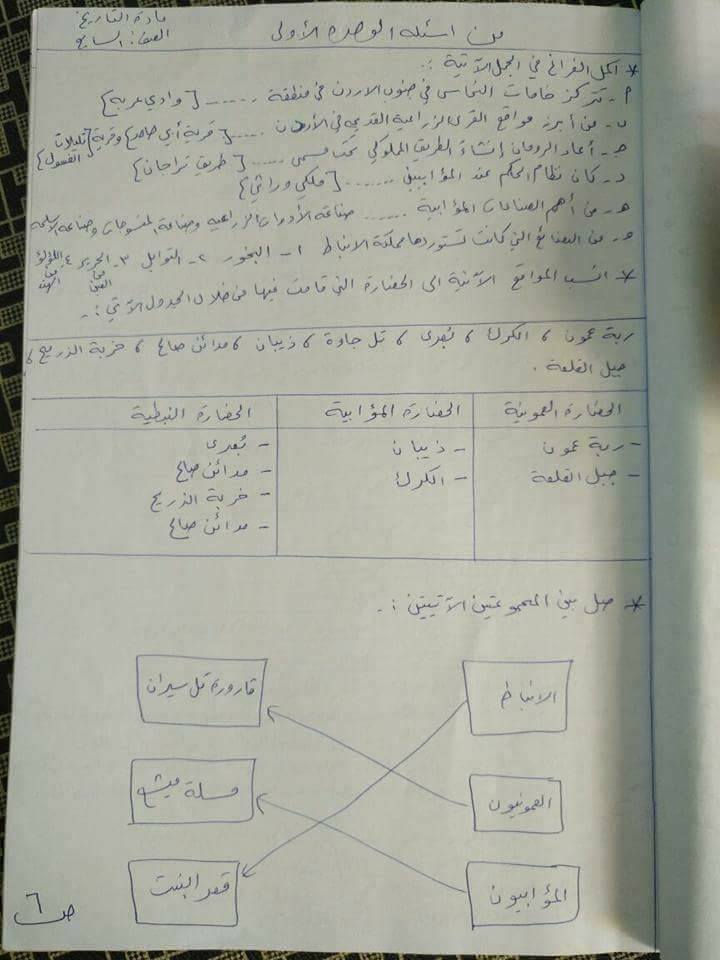 مادة التاريخ
من اسئلة الوحدة الأولى
الصف: السابع
* اكمل الفراغ في الجمل الآتية :.
أ- تتركز خامات النحاس في جنوب الاردن في منطقة ...... {وادي عربة}
ب- من أبرز مواقع القرى الزراعية القديمة في الأردن ...... {قرية أبي حامد} وقرية {تليلات الغسول}
ج- أعاد الرومان إنشاء الطريق الملوكي تحت مسمى ...... {طريق تراجان}
د- كان نظام الحكم عند المؤابيين ...... {ملكي وراثي}
هـ- من أهم الصناعات المؤابية ...... صناعة الأدوات الزراعية وصناعة المنسوجات وصناعة الاسلحة
و- من البضائع التي كانت تستوردها مملكة الانباط ١- البخور ٢- التوابل ٣- الحرير من الصين ٤- اللؤلؤ من الهند
* انسب المواقع الآتية الى الحضارة التي قامت فيها من خلال الجدول الآتي :.
ربة عمون ، الكرك ، بُصرى ، تل جاوة ، ذيبان ، مدائن صالح ، خربة الذريح ،
جبل القلعة .
الحضارة العمونية
الحضارة المؤابية
الحضارة النبطية
- ربة عمون
- ذيبان
- بُصرى
- جبل القلعة
- الكرك
- مدائن صالح
- خربة الذريح
- مدائن صالح
* صل بين المجموعتين الآتيتين :.
الانباط
قارورة تل سيران
العمونيون
مسلة ميشع
المؤابيون
قصر البنت
ص ٦